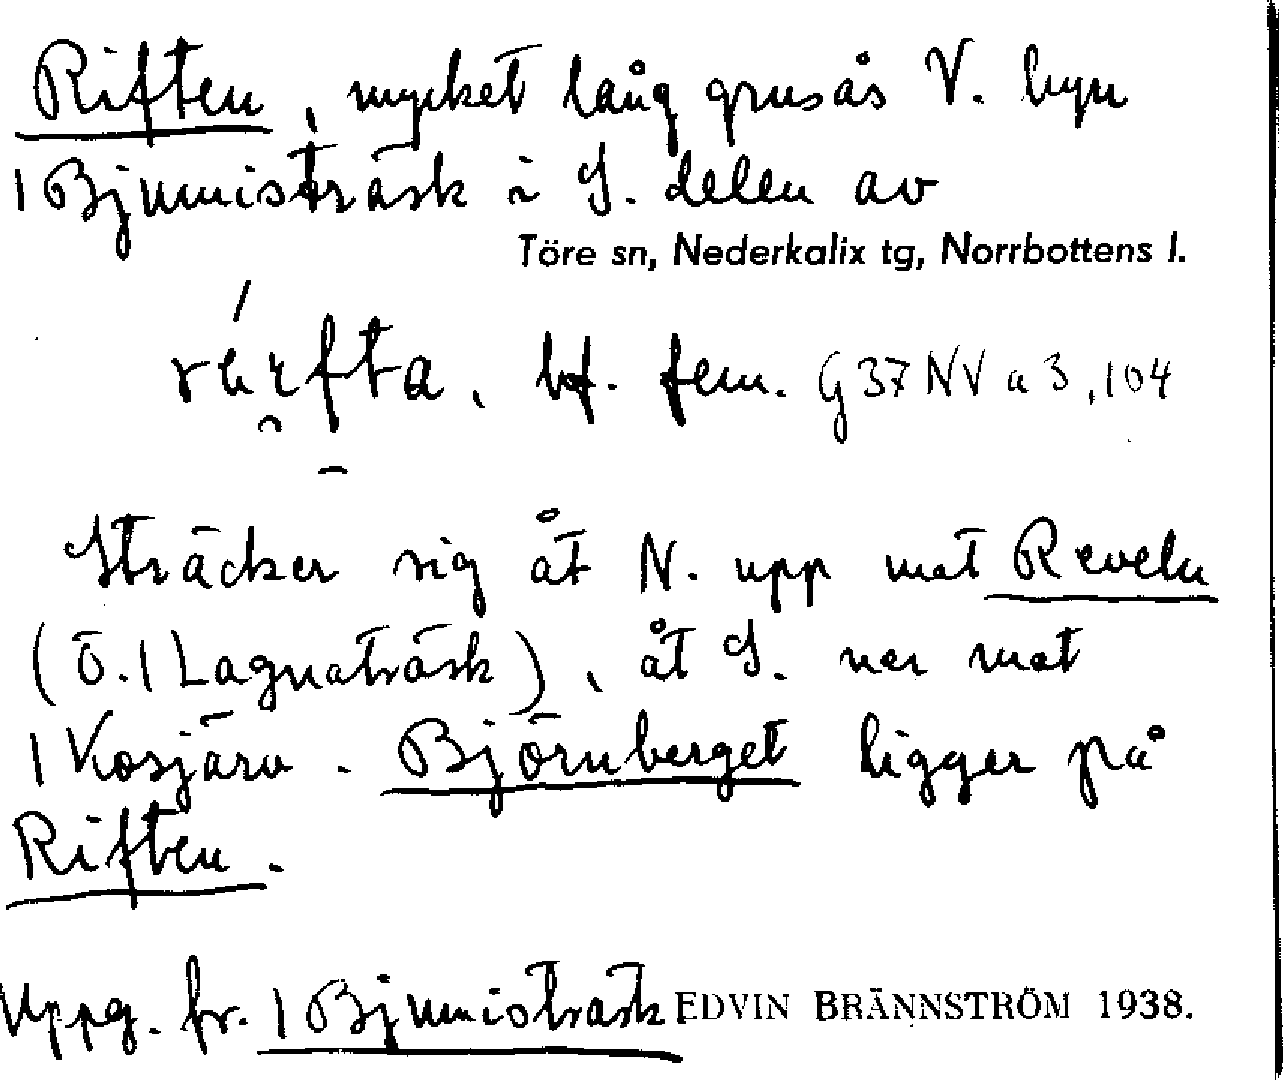 Riften, mycket lång grusås V. byn
1 Bjumisträsk i S. delen av
Töre sn, Nederkalix tg, Norrbottens l.
bf. fem. G37NV a 3,104
Sträcker sig åt N. upp mot Reveln
(Ö. 1 Lagnaträsk), åt S. ner mot
1 Kosjärv. Björnberget ligger på
Riften.
Uppg. fr. 1 Bjumisträsk EDVIN BRÄNNSTRÖM 1938.